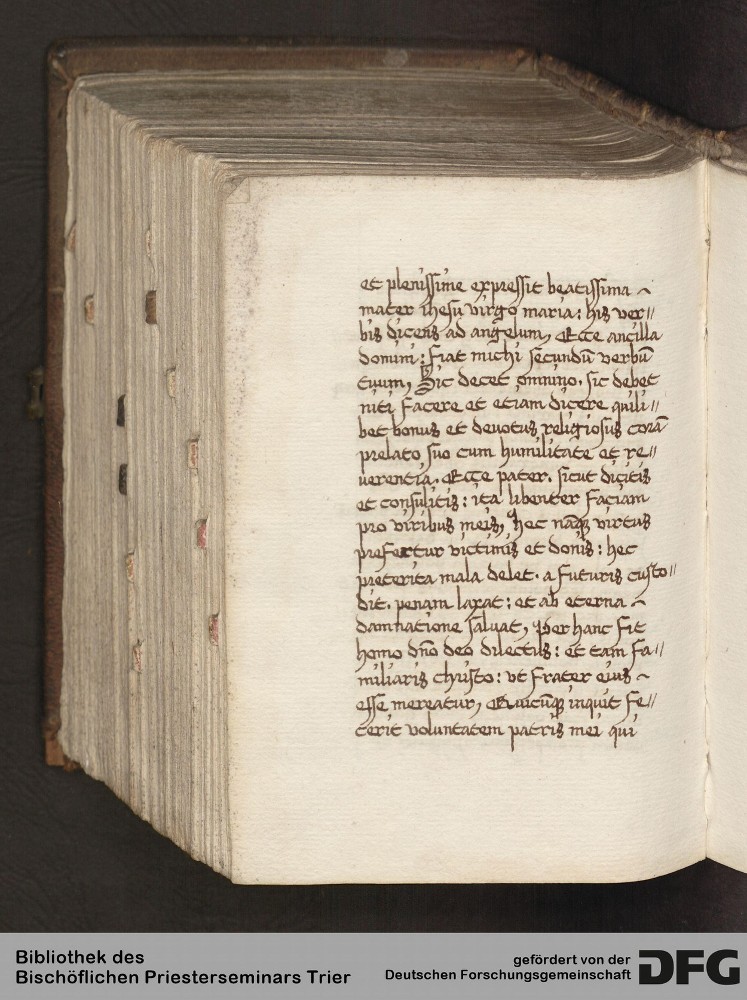 et plenissime expressit beatissima ~
mater ihesu virgo maria: his ver//
bis dicens ad angelum, Ecce ancilla
domini: fiat michi secundū verbū
tuum, Sic decet omnino. sic debet
niti facere et etiam dicere quili//
bet bonus et devotus religiosus corā
prelato suo cum humilitate et re//
verentia. Ecce pater. sicut dicitis
et consulitis: ita libenter faciam
pro viribus meis, Hec nāqꝫ virtus
prefertur victimis et donis: hec
preterita mala delet. a futuris custo//
dit. penam laxat: et ab eterna ~
damnatione salvat, Per hanc fit
homo dn̄o deo dilectus: et tam fa//
miliaris christo: ut frater eius ~
esse mereatur, Quicūqꝫ inquit fe//
cerit voluntatem patris mei qui
Bibliothek des
Bischöflichen Priesterseminars Trier
gefördert von der
Deutschen Forschungsgemeinschaft
DFG